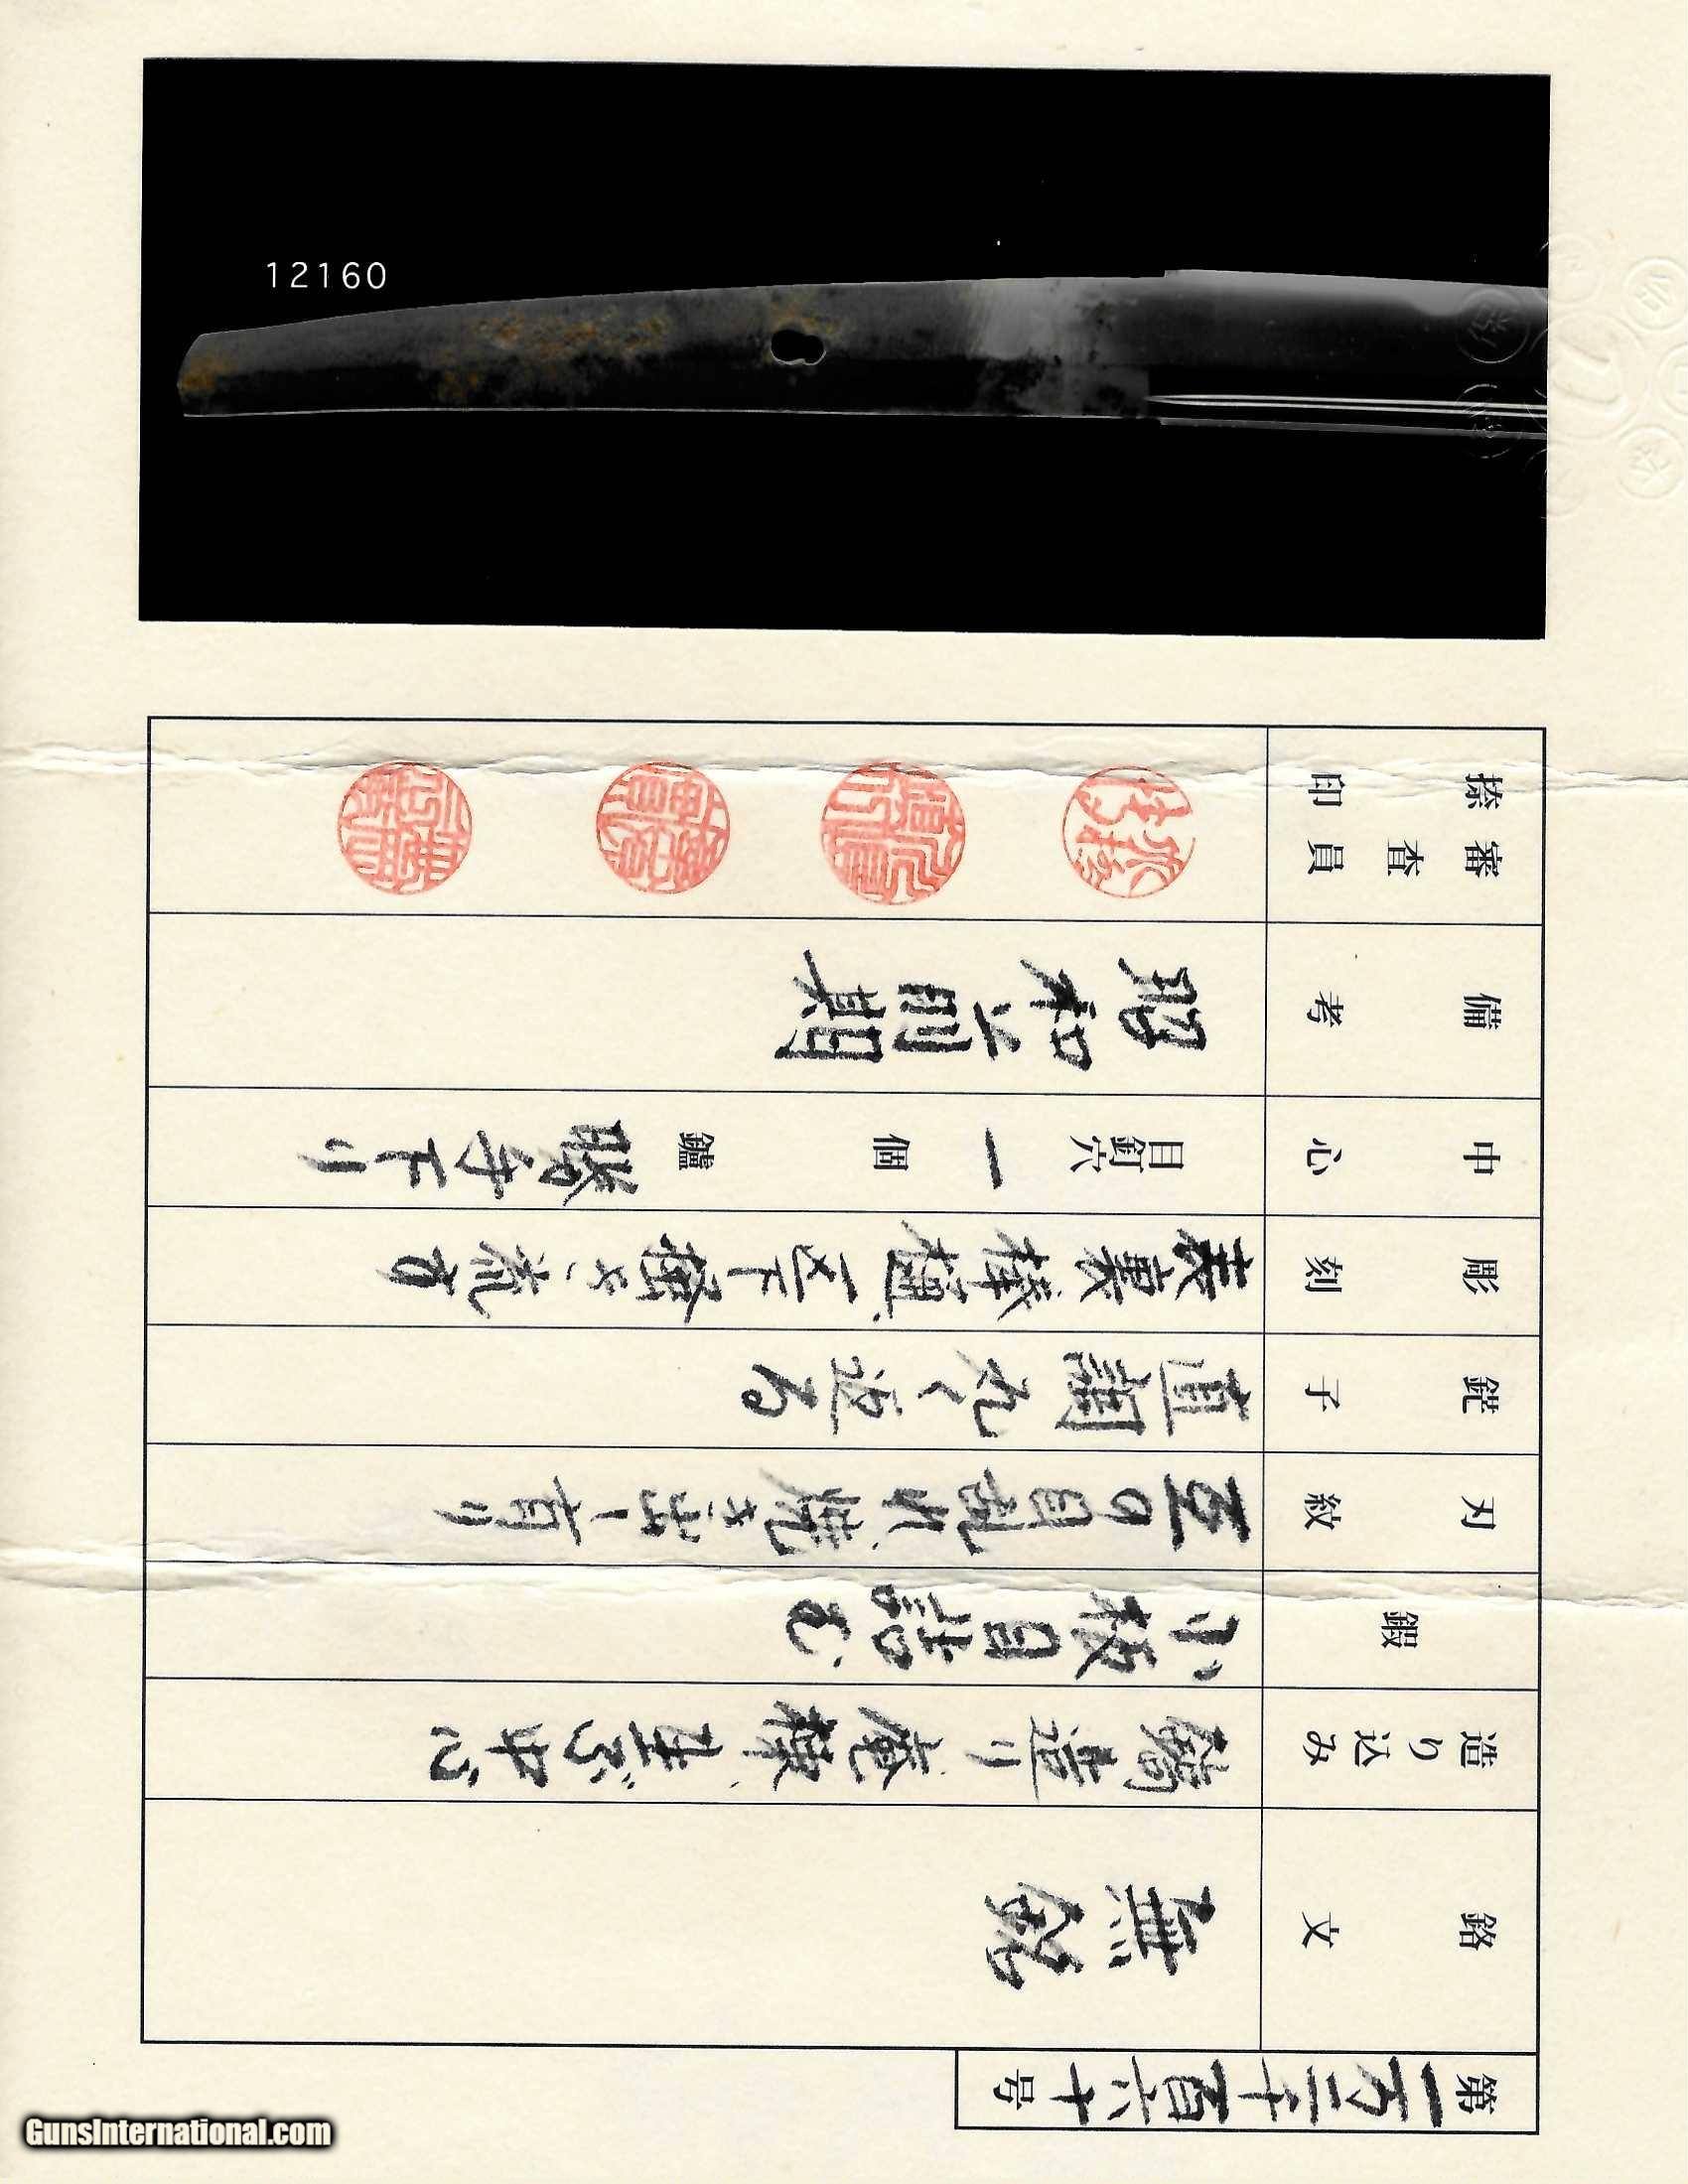 12160
第一万二千百六十号
銘文
無銘
造り込み
鎬造り、庵棟、生ぶ中心
鍛
小板目詰む
刃紋
互の目乱れ、焼き出し有り
鋩子
直調丸く返る
彫刻
表裏棒樋、
中心
目釘穴 一 個 鑢 勝手下り
備考
昭和前期
審査員捺印
GunsInternational.com